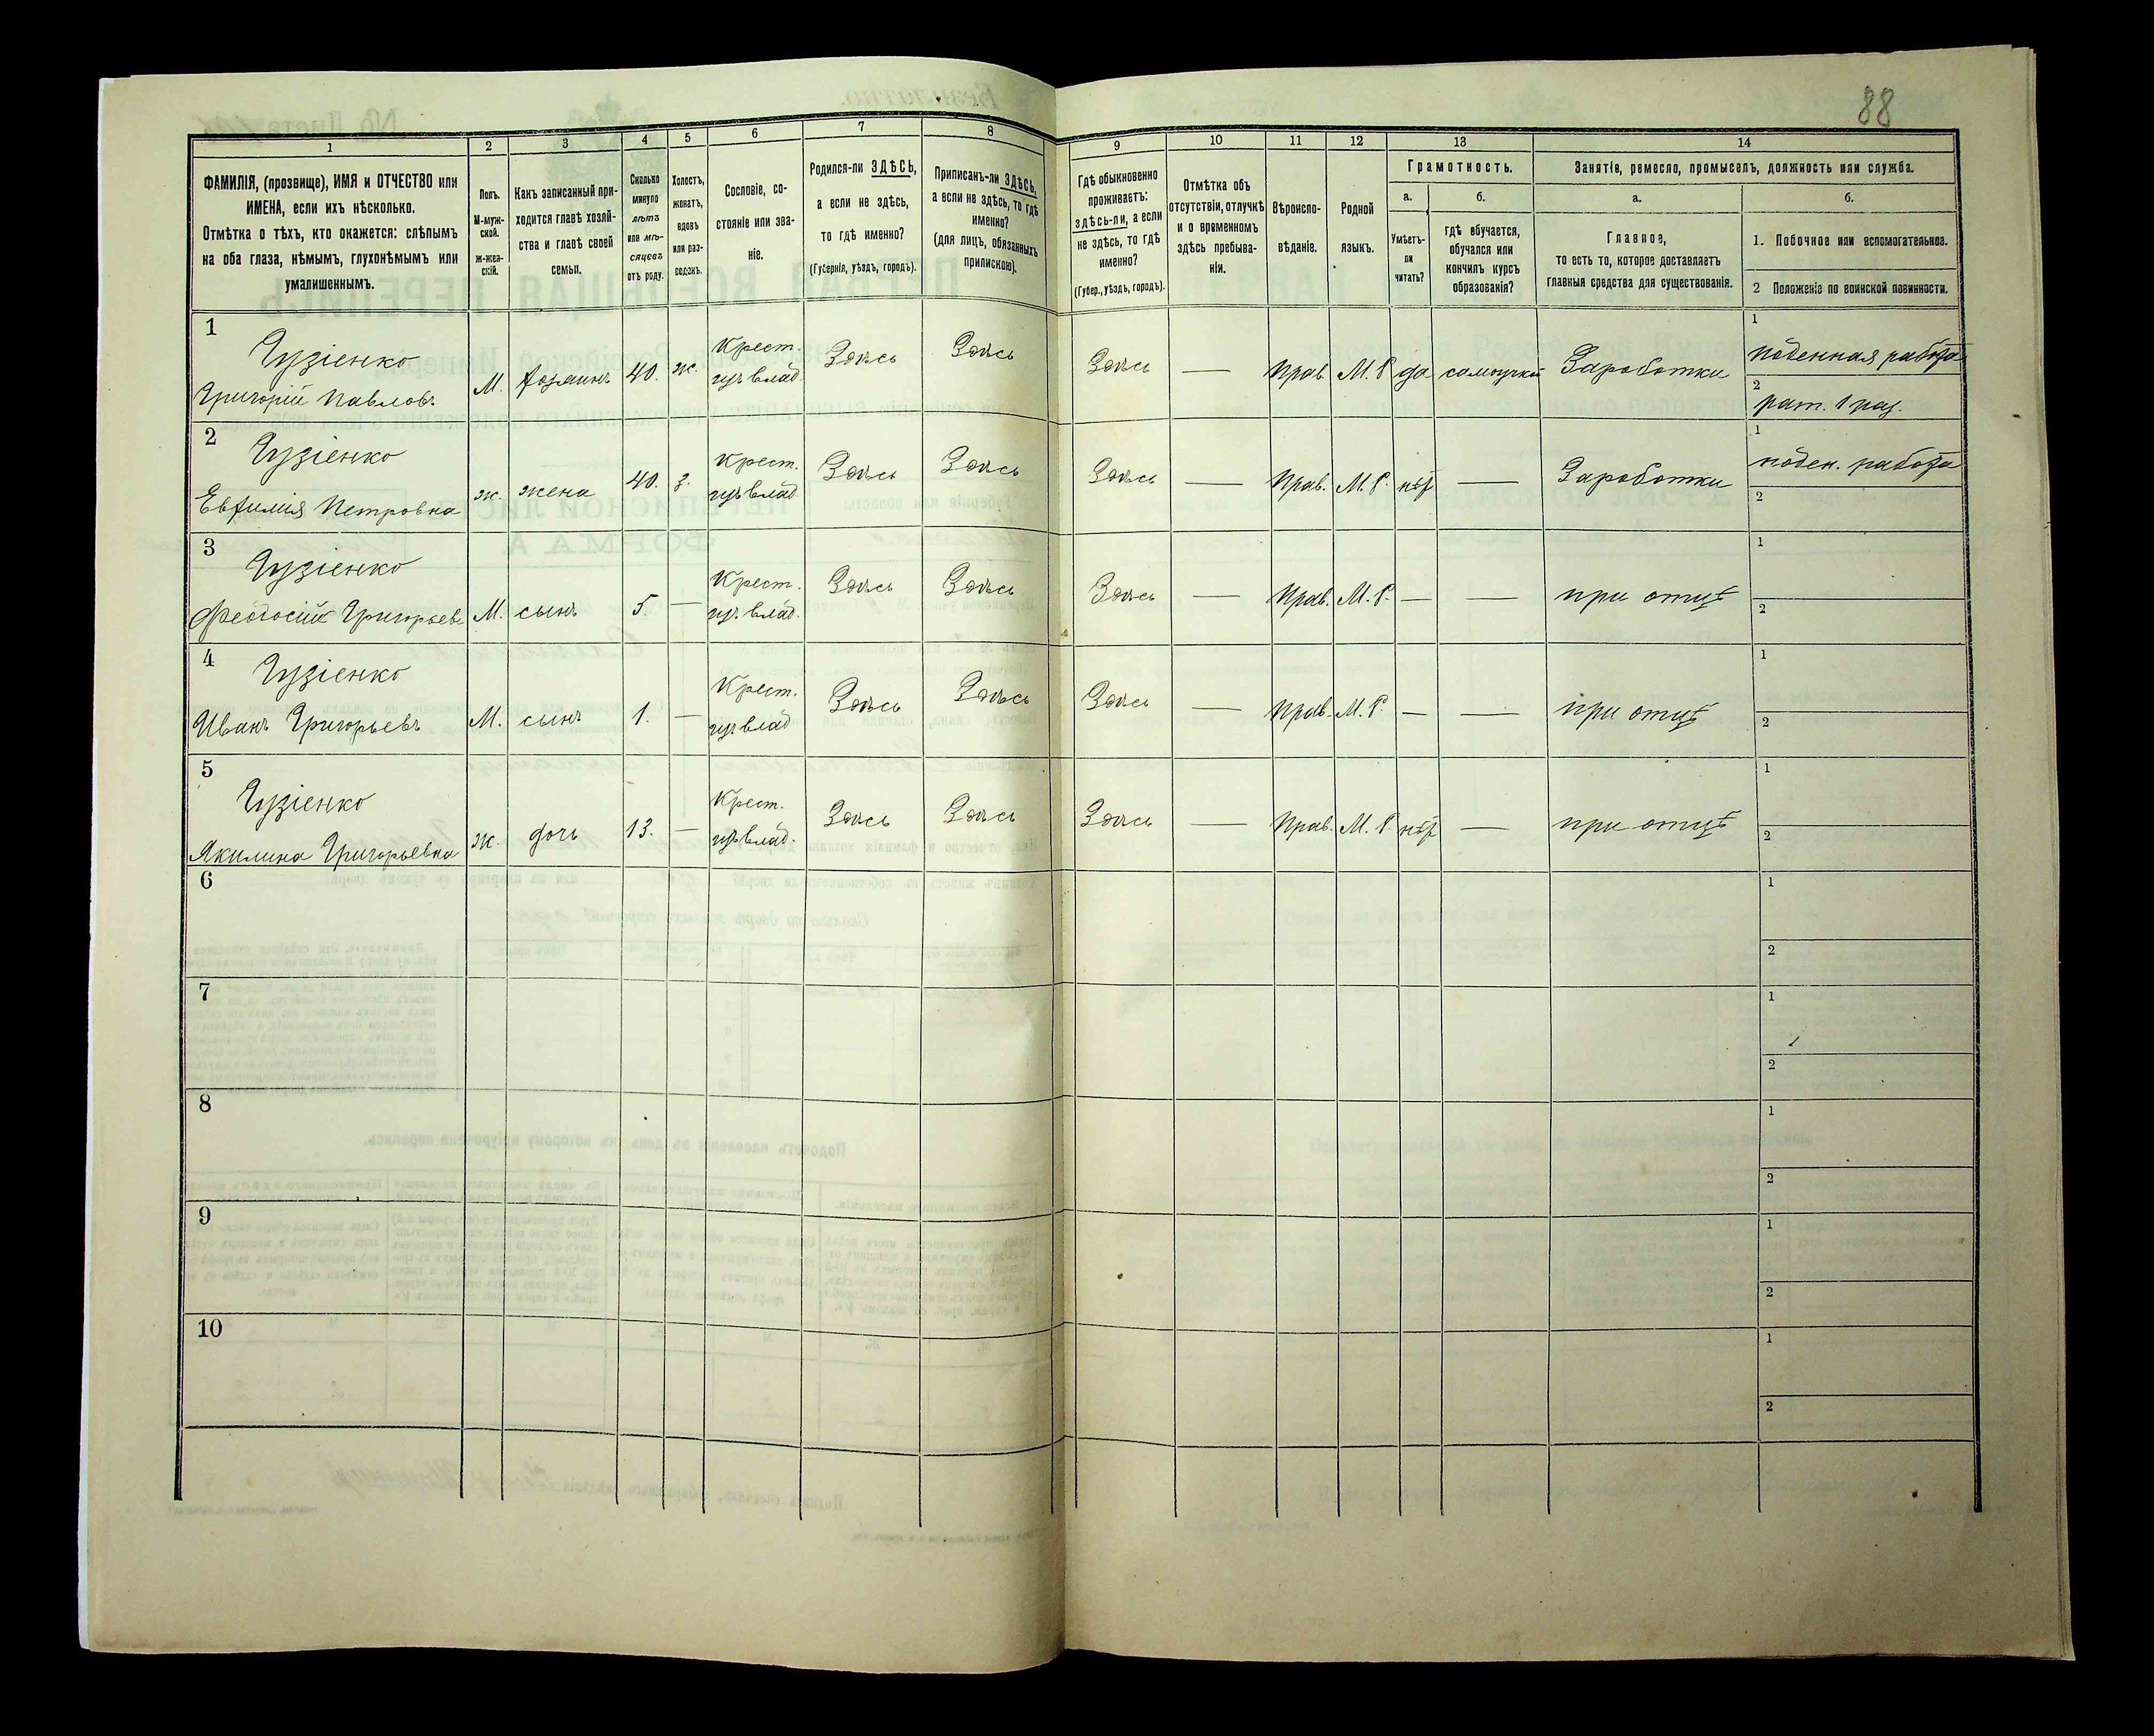 88
1 2 3 4 5 6 7 8 9 10 11 12 13 14
ФАМИЛІЯ, (прозвище), ИМЯ и ОТЧЕСТВО или
ИМЕНА, если ихъ нѣсколько.
Отмѣтка о тѣхъ, кто окажется: слѣпымъ
на оба глаза, нѣмымъ, глухонѣмымъ или
умалишеннымъ.
Полъ.
М-муж-
ской.
Ж-жен-
скій.
Какъ записанный при-
ходится главѣ хозяй-
ства и главѣ своей
семьи.
Сколько
минуло
лѣтъ
или мѣ-
сяцевъ
отъ роду.
Холостъ,
женатъ,
вдовъ
или раз-
веденъ.
Сословіе, со-
стояніе или зва-
ніе.
Родился-ли ЗДѢСЬ,
а если не здѣсь,
то гдѣ именно?
(Губернія, уѣздъ, городъ).
Приписанъ-ли ЗДѢСЬ,
а если не здѣсь, то гдѣ
именно?
(для лицъ, обязанныхъ
припискою).
Гдѣ обыкновенно
проживаетъ:
здѣсь-ли, а если
не здѣсь, то гдѣ
именно?
(Губер., уѣздъ, городъ).
Отмѣтка объ
отсутствіи, отлучкѣ
и о временномъ
здѣсь пребыва-
ніи.
Вѣроиспо-
вѣданіе.
Родной
языкъ.
Грамотность.
а.
Умѣетъ-
ли
читать?
б.
гдѣ обучается,
обучался или
кончилъ курсъ
образованія?
Занятіе, ремесло, промыселъ, должность или служба.
а.
Главное,
то есть то, которое доставляетъ
главныя средства для существованія.
б.
1. Побочное или вспомогательное.
2 Положеніе по воинской повинности.
1
Гузіенко
Григорій Павловъ
М. хозяинъ 40. ж.
Крест.
изъ влад.
Здѣсь Здѣсь Здѣсь — Прав. М. Р. да самоучкой Заработки
1 поденная работа
2 рат. 1 раз.
2
Гузіенко
Евфимія Петровна
ж. жена 40. з.
Крест.
изъ влад.
Здѣсь Здѣсь Здѣсь — Прав. М. Р. нѣт — Заработки
1 поден. работа
2
3
Гузіенко
Феодосій Григорьевъ
М. сынъ 5. —
Крест.
из. влад.
Здѣсь Здѣсь Здѣсь — Прав. М. Р. — — при отцѣ
1
2
4
Гузіенко
Иванъ Григорьевъ
М. сынъ 1. —
Крест.
изъ влад
Здѣсь Здѣсь Здѣсь — Прав. М. Р. — — при отцѣ
1
2
5
Гузіенко
Якилина Григорьевна
ж. дочь 13. —
Крест.
изъ влад.
Здѣсь Здѣсь Здѣсь — Прав. М. Р. нѣт — при отцѣ
1
2
6
1
2
7
1
2
8
1
2
9
1
2
10
1
2